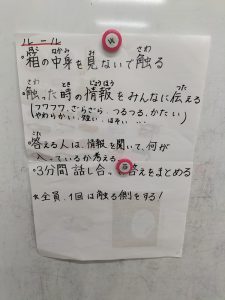 ルール
・箱の中身を見ないで触る
・触った時の情報をみんなに伝える
(フワフワ、さらさら、つるつる、かたい
やわらかい、短い、ほそい…)
・答える人は、情報を聞いて、何が
入っているか考える
・3分間話し合っ 答えをまとめる
*全員、1回は触る側をする!